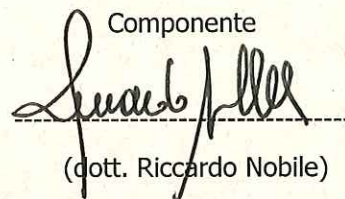 Componente
(dott. Riccardo Nobile)